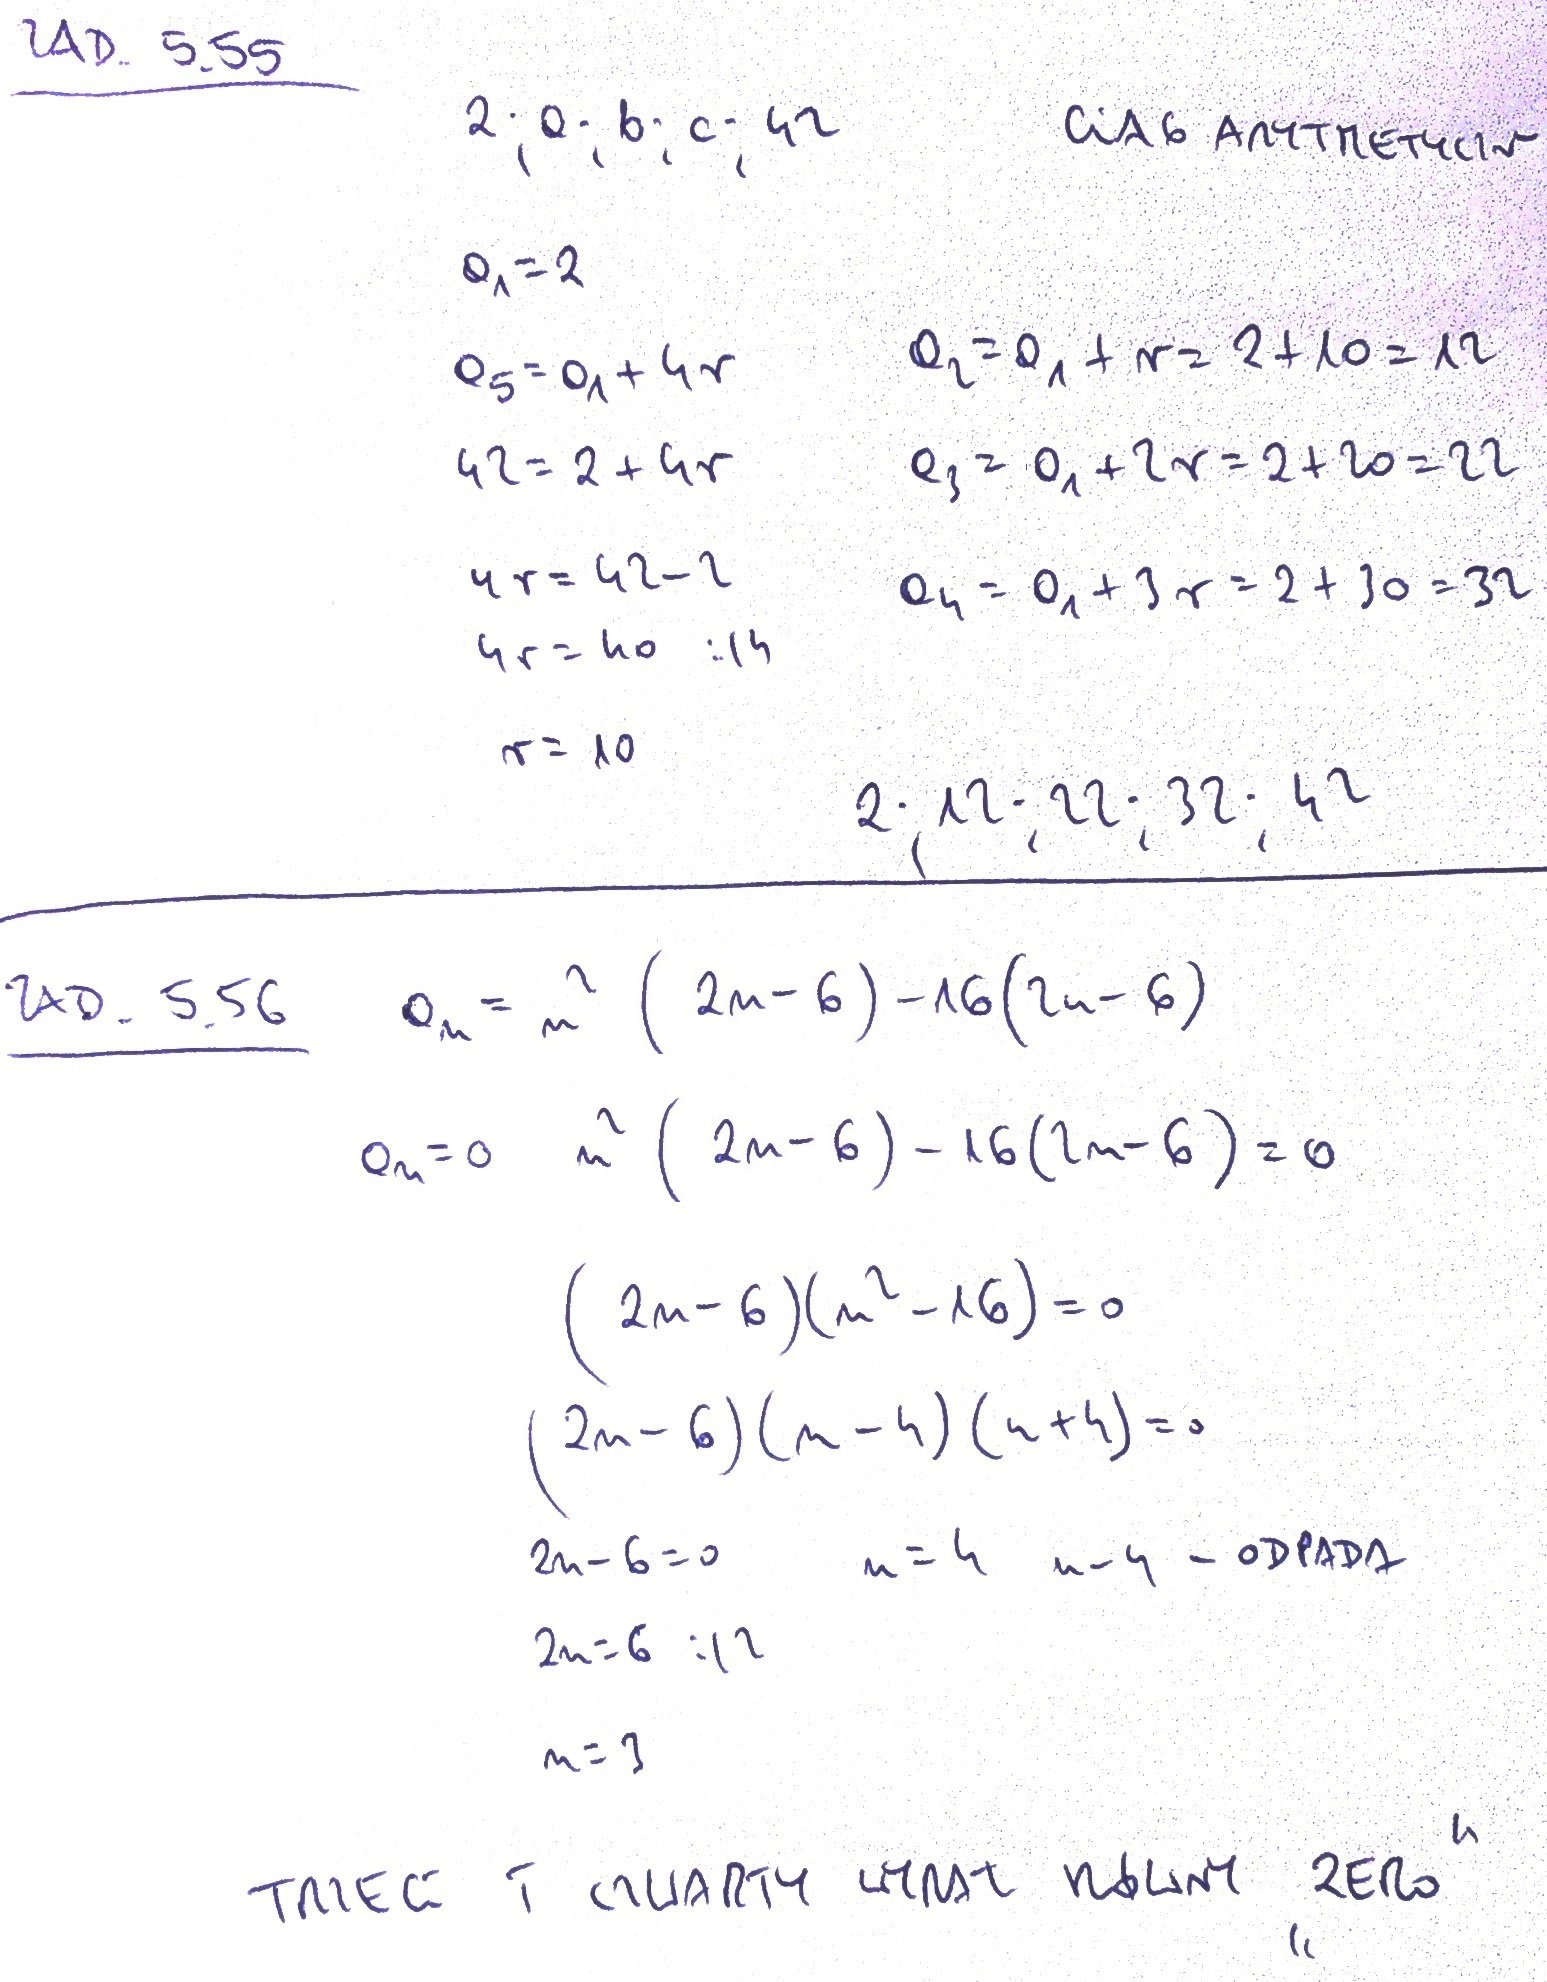 ZAD. 5.55
2; a; b; c; 42 CIĄG ARYTMETYCZNY
a₁=2
a₅=a₁+4r a₂=a₁+r=2+10=12
42=2+4r a₃=a₁+2r=2+20=22
4r=42-2 a₄=a₁+3r=2+30=32
4r=40 :|4
r=10
2; 12; 22; 32; 42
ZAD. 5.56 aₙ=n²(2n-6)-16(2n-6)
aₙ=0 n²(2n-6)-16(2n-6)=0
(2n-6)(n²-16)=0
(2n-6)(n-4)(n+4)=0
2n-6=0 n=4 n-4 - ODPADA
2n=6 :|2
n=3
TRZECI I CZWARTY WYRAZ RÓWNY „ZERO"